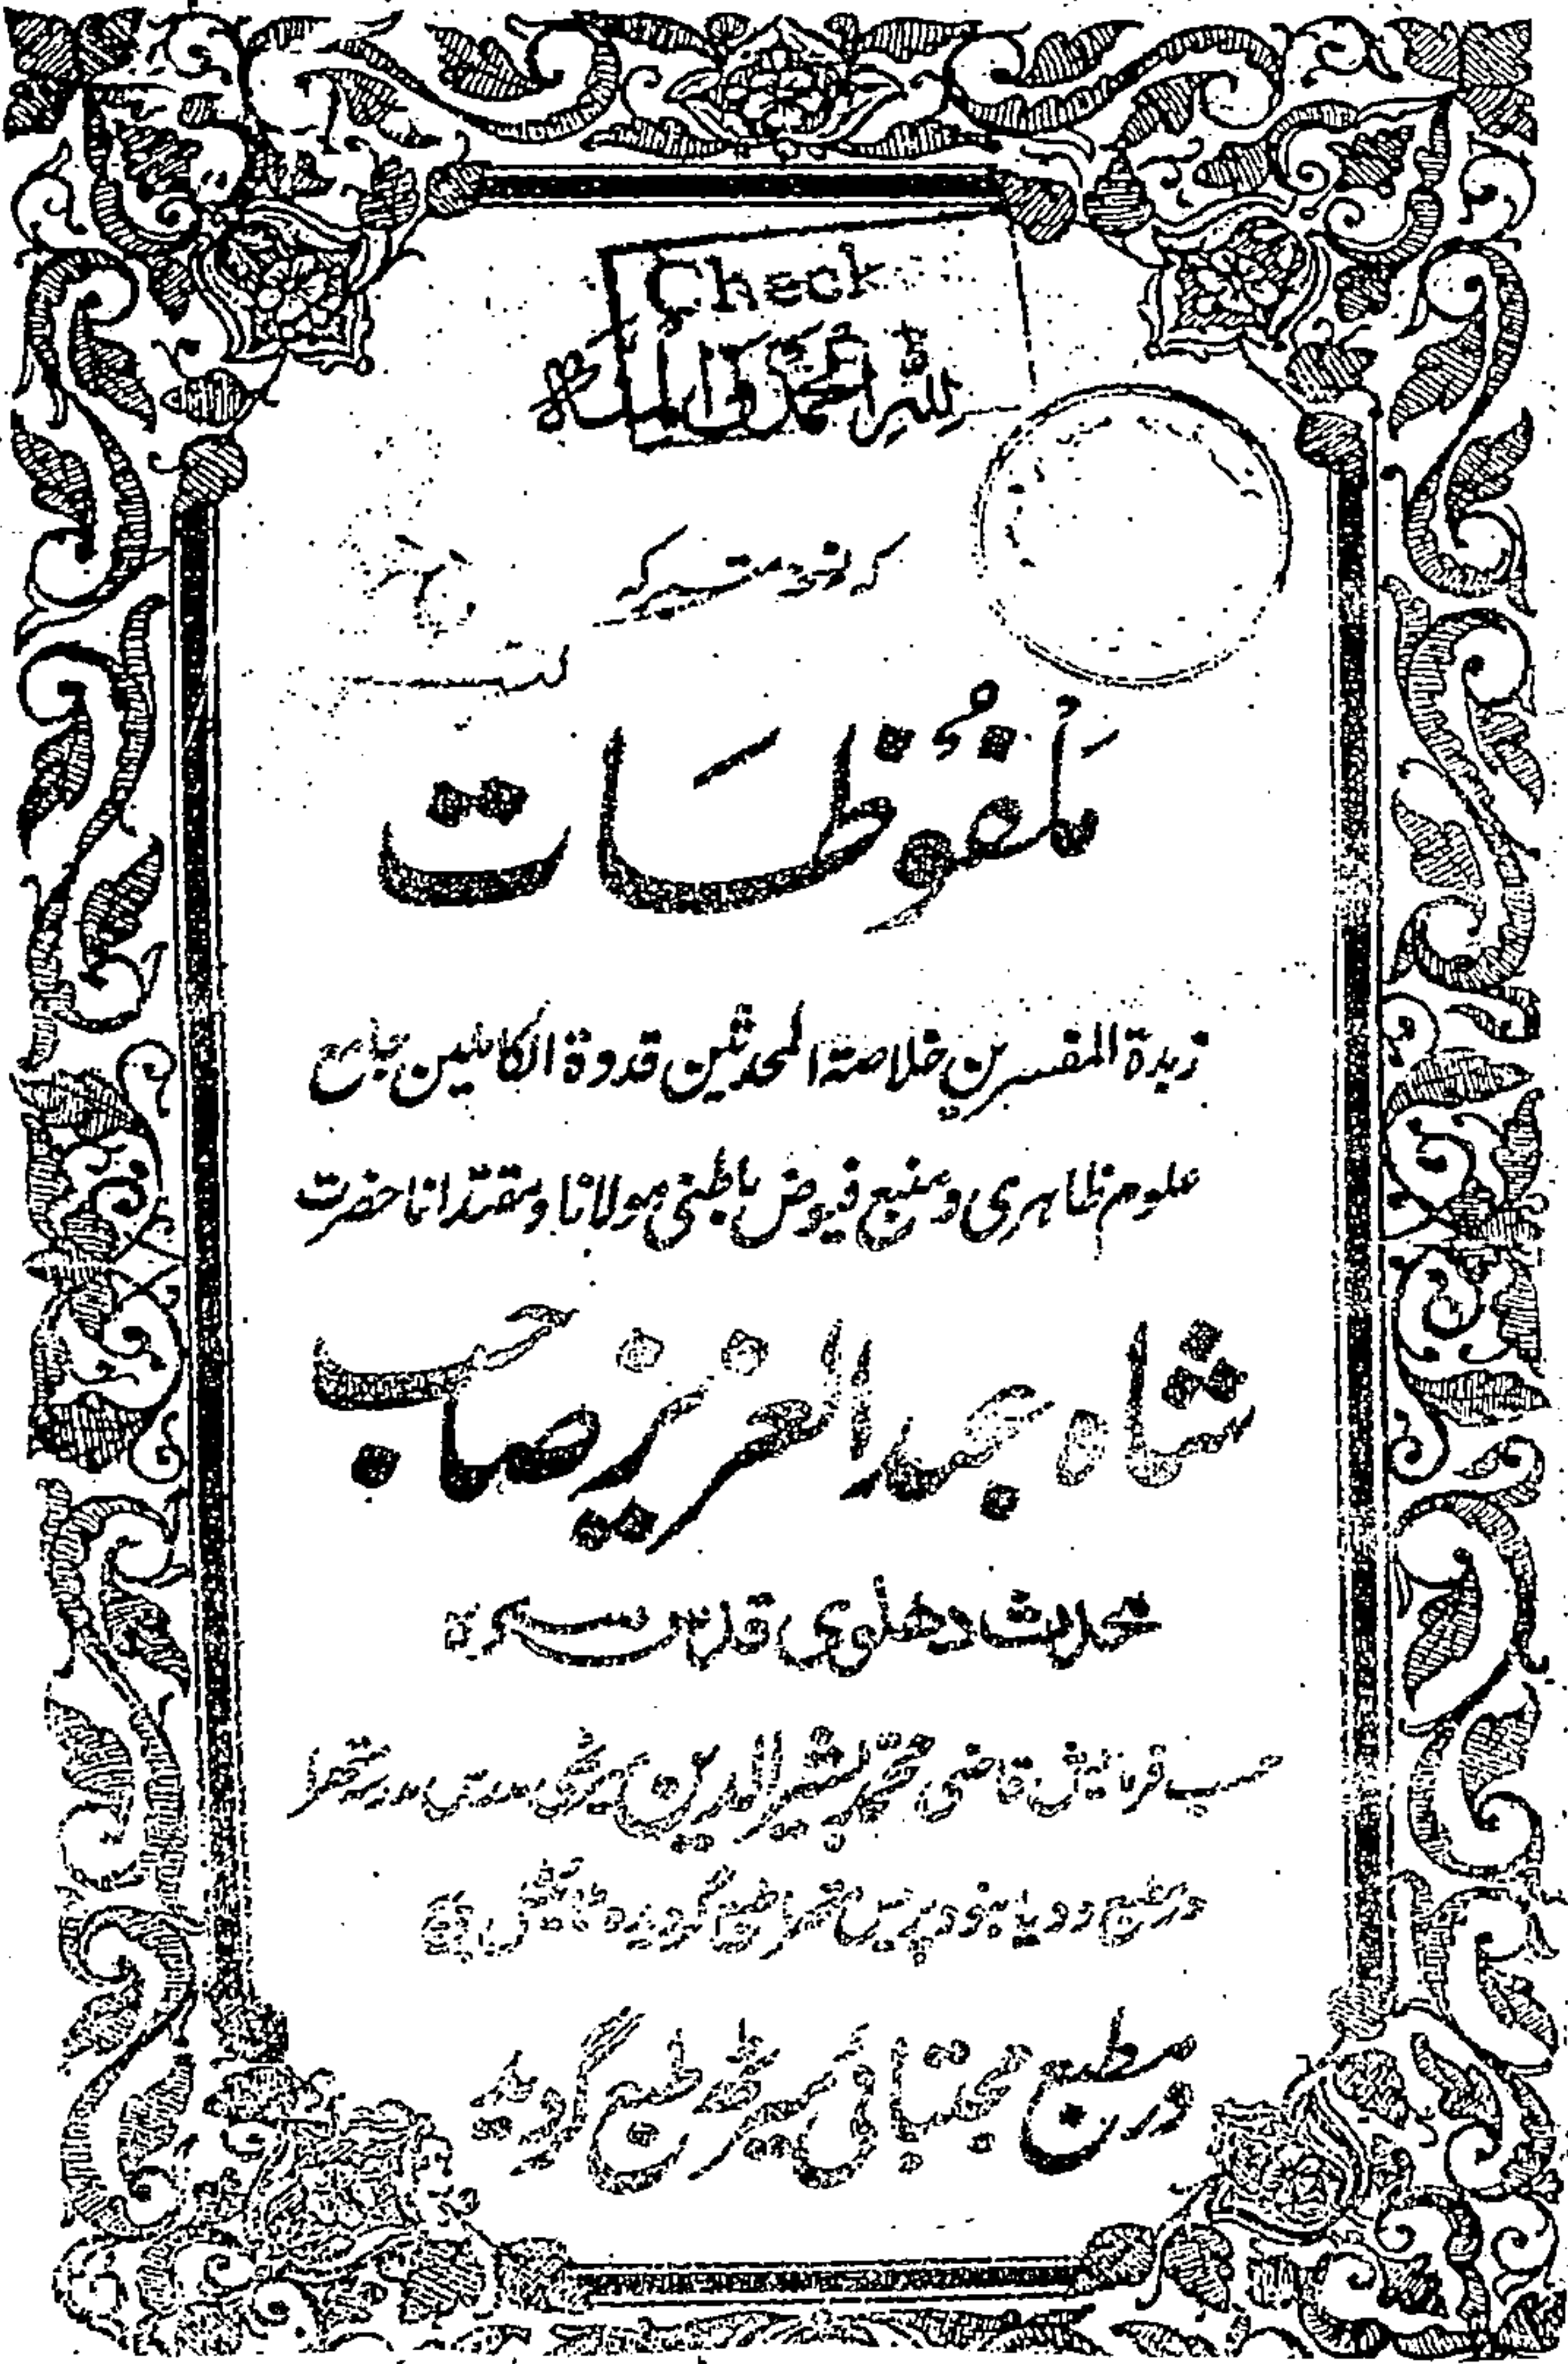 Check
للہ الحمد والمنۃ
کہ نسخہ متبرکہ
مَلْفُوظَات
زبدة المفسرين خلاصة المحدثين قدوة الكاملين جامع
علوم ظاہری و منبع فیوض باطنی مولانا و مقتدانا حضرت
شاہ عبدالعزیز صاحب
محدث دهلوی قدس سره
حسب فرمایش قاضی محمد بشیر الدین میرٹھی مدرس مدرسہ متھرا
در مطبع
در مطبع مجتبائی میرٹھ طبع گردید